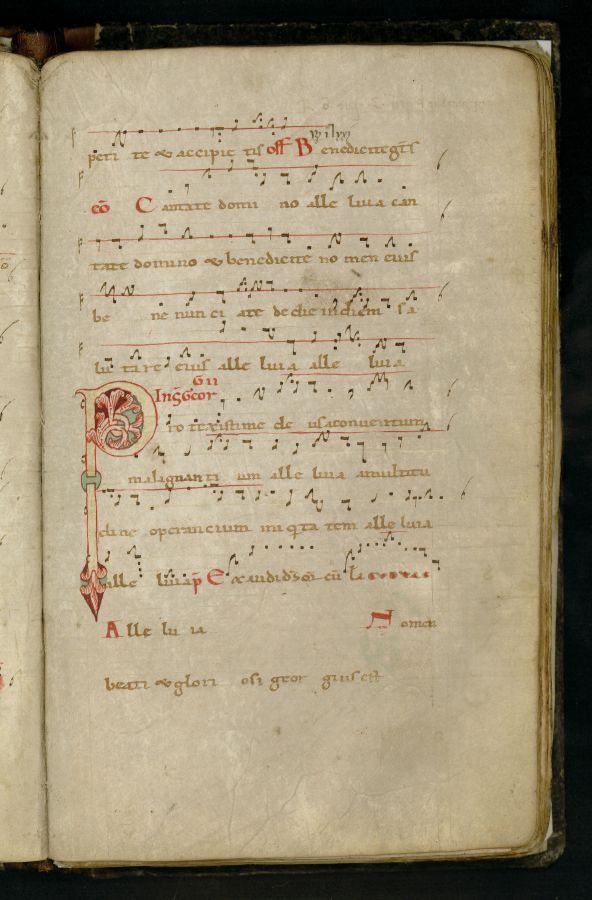 peti te & accipie tis off Benedicite gts
cō Cantate domi no alle luia can
tate domino & benedicite no men eius
be ne nun ci ate de die in diem sa
lu ta re eius alle luia alle luia
In
Pro texistime de usa conuentum
malignanti um alle luia amultitu
dine operancium in iqta tem alle luia
alle luia p̄ Exaudi ds cū
Alle lu ia Nomen
beati & glori osi geor gius est